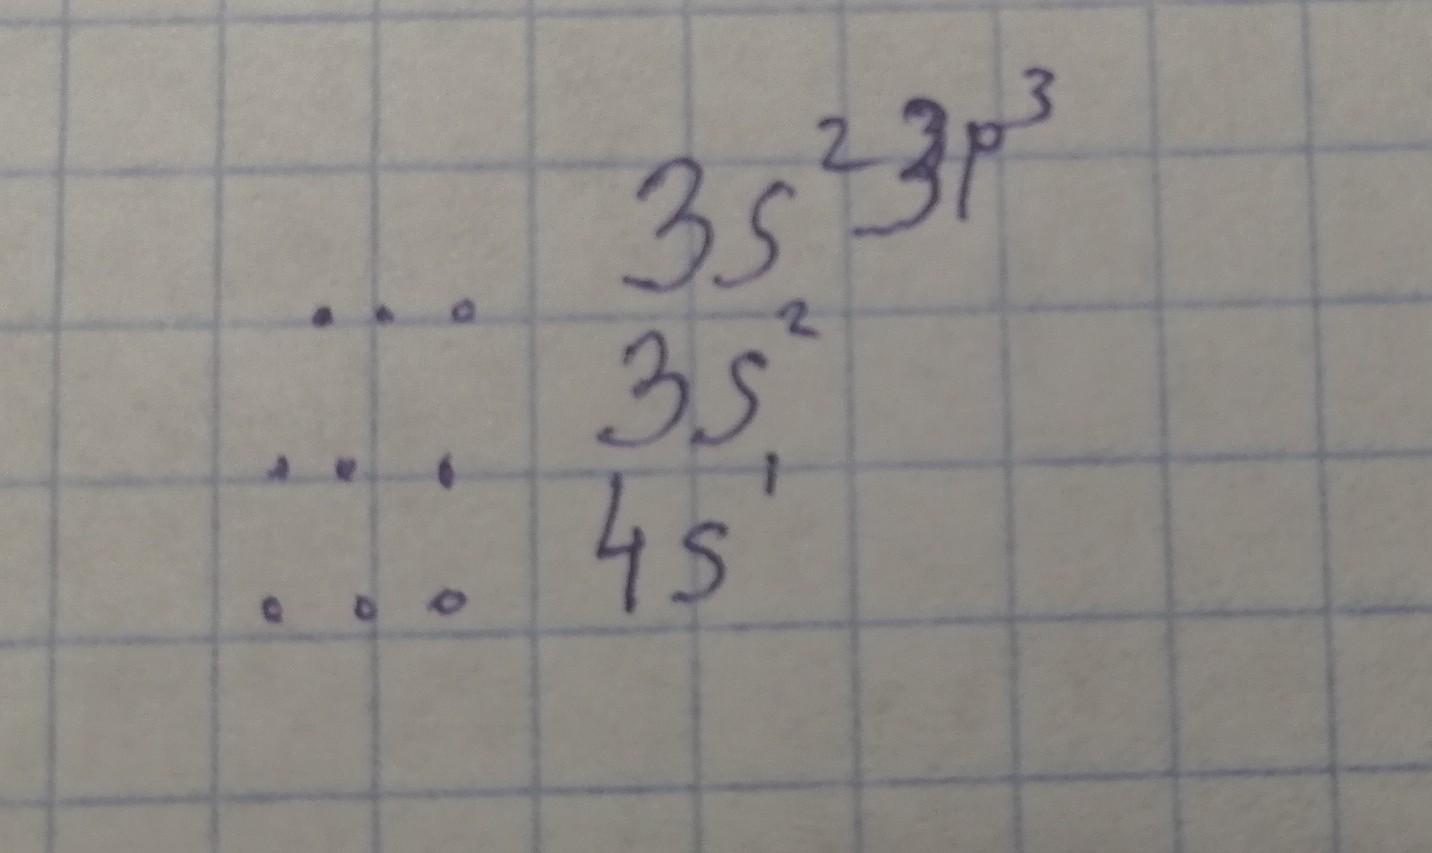 ... 3s² 3p³
... 3s²
... 4s¹